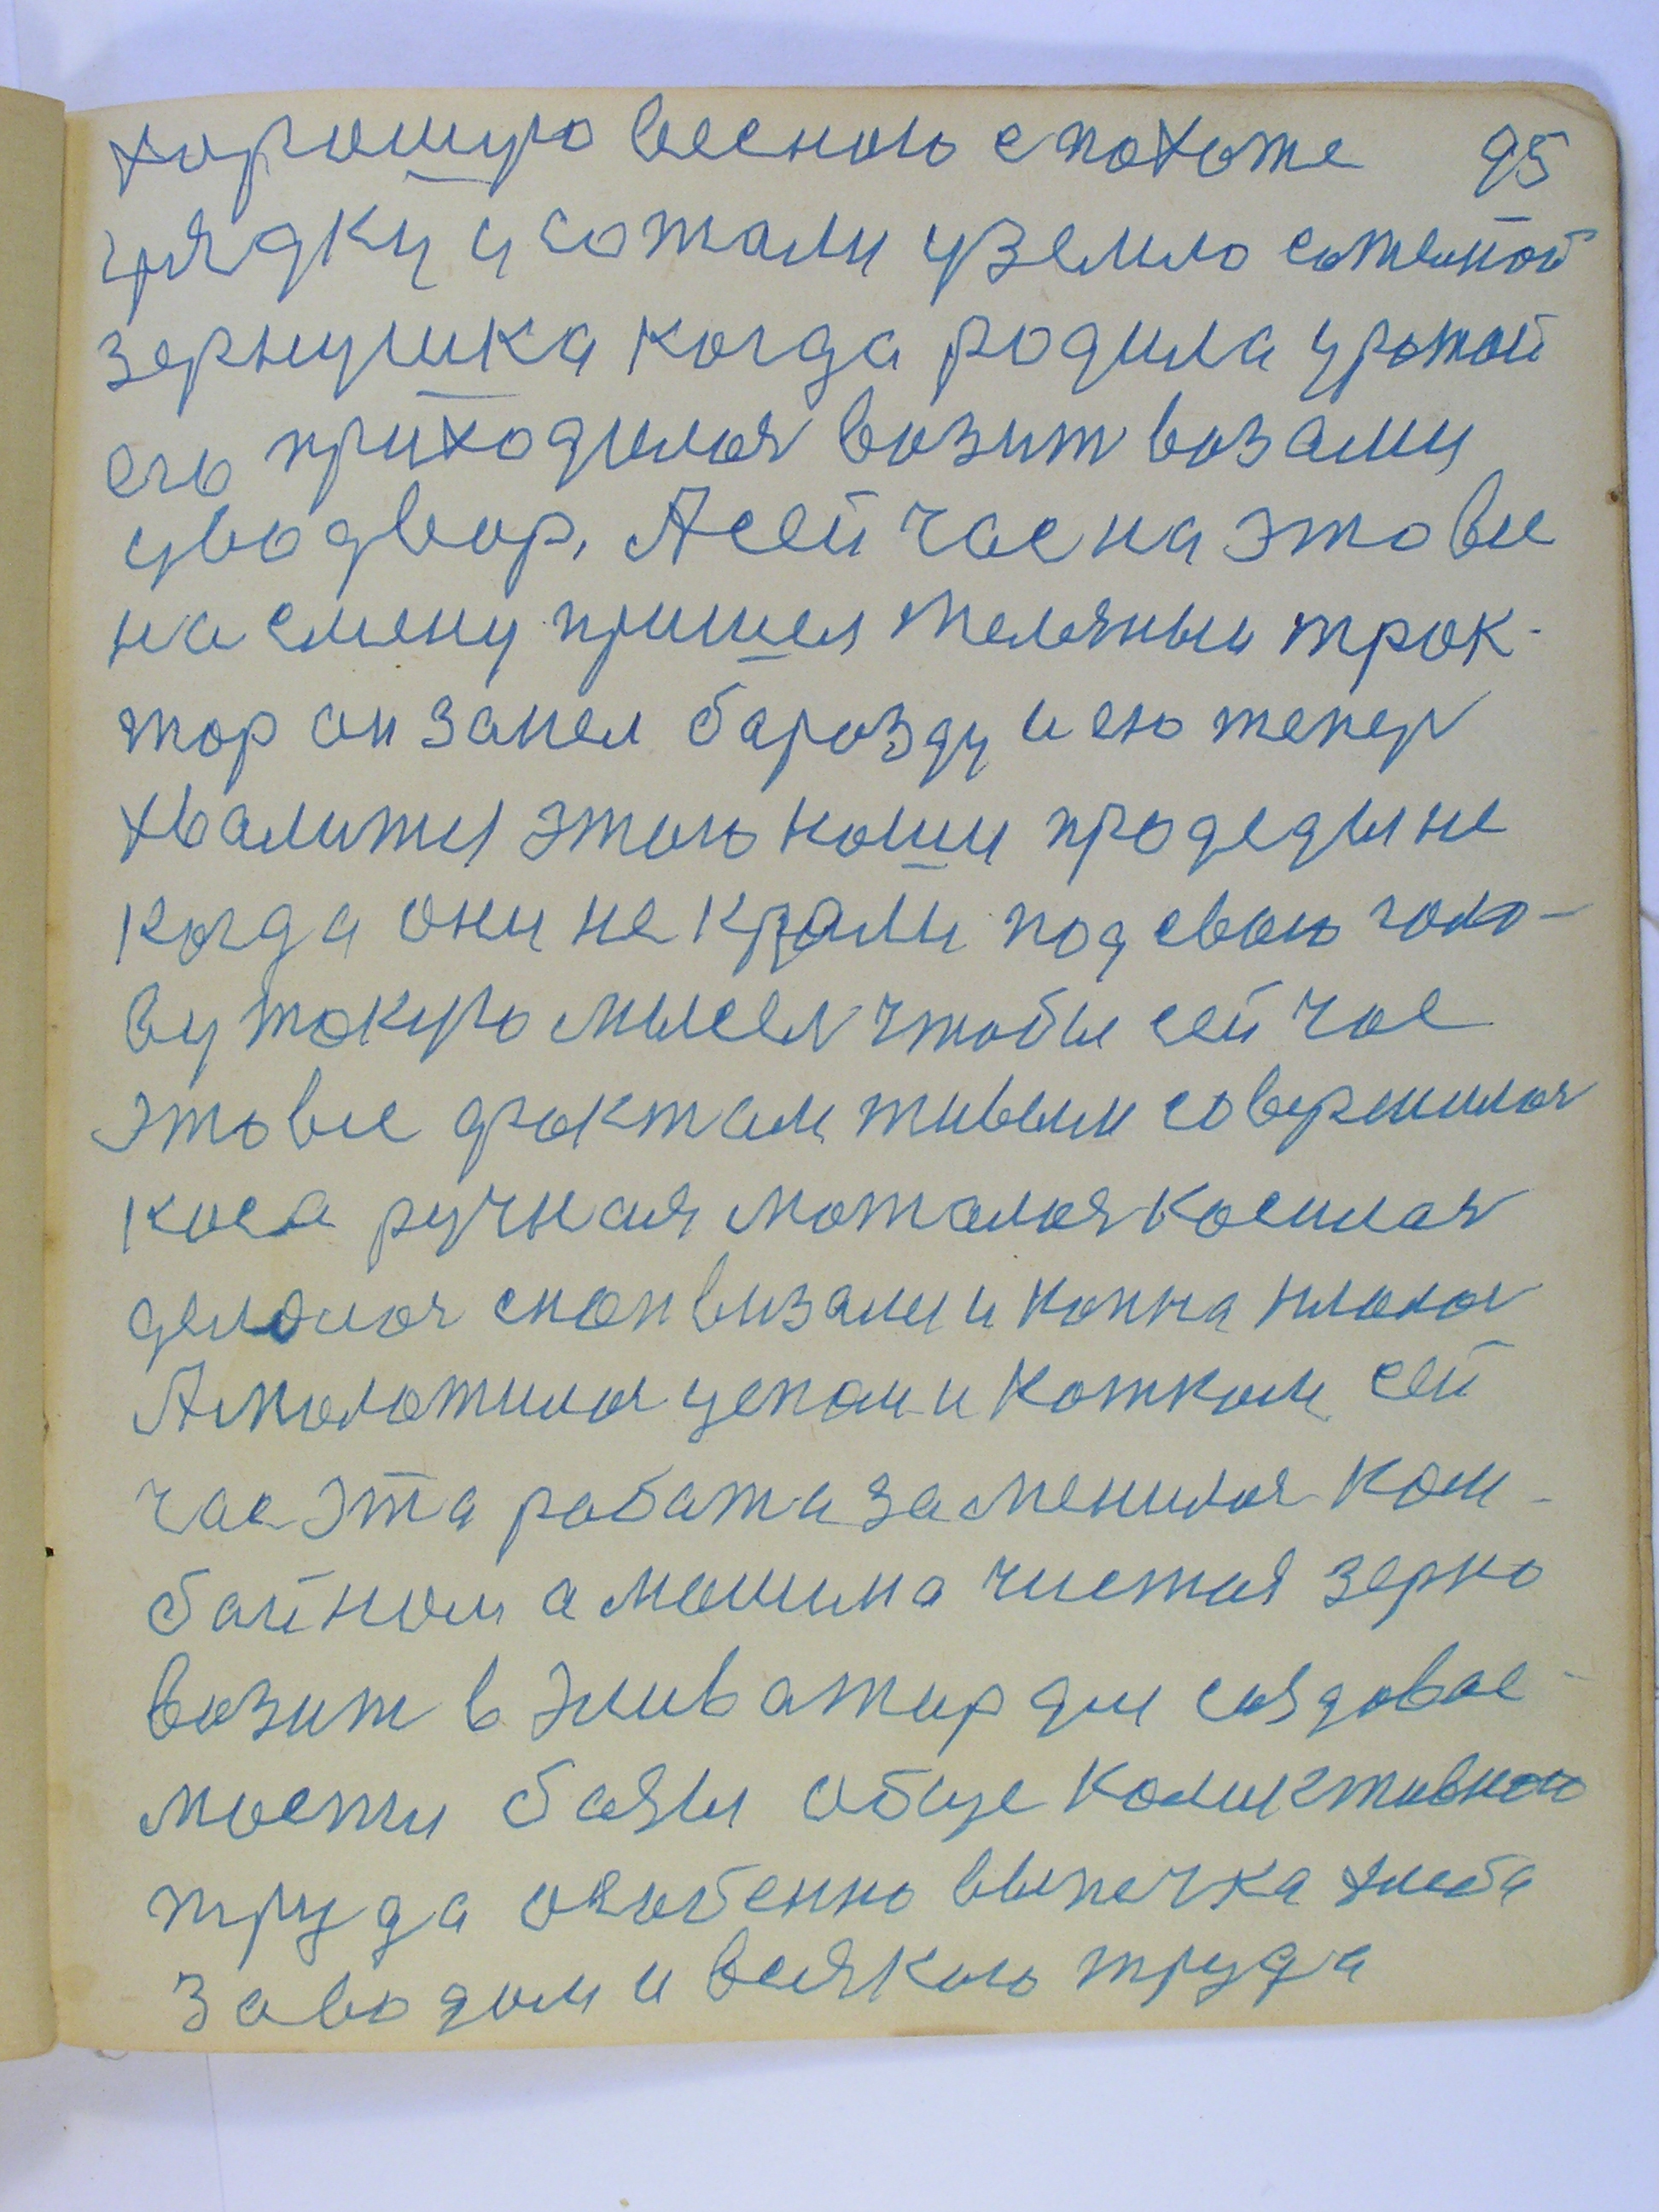 хорошую весною спахоте 95
грядку и сажали уземлю
зернушка когда родила урожай
его приходилоя возит возами
уво двор. А сей час на это все
на смену пришел трак-
тор он запел барозду и ею тепер
хвалится этого наши прадеды не
когда они не крали под свою голо-
ву такую мысел чтобы сей час
это все фактам живым совершилоя
коса ручная моталоя косилоя
делалоя сноп вязали и копна клалоя
Амолотилоя цепам и котком сей
час эта работа заменилоя ком-
байном а машина чистая зерно
возит в эливатор для
мости базы обще коликтивного
труда особенно выпечка хлеба
заводом и всякого труда